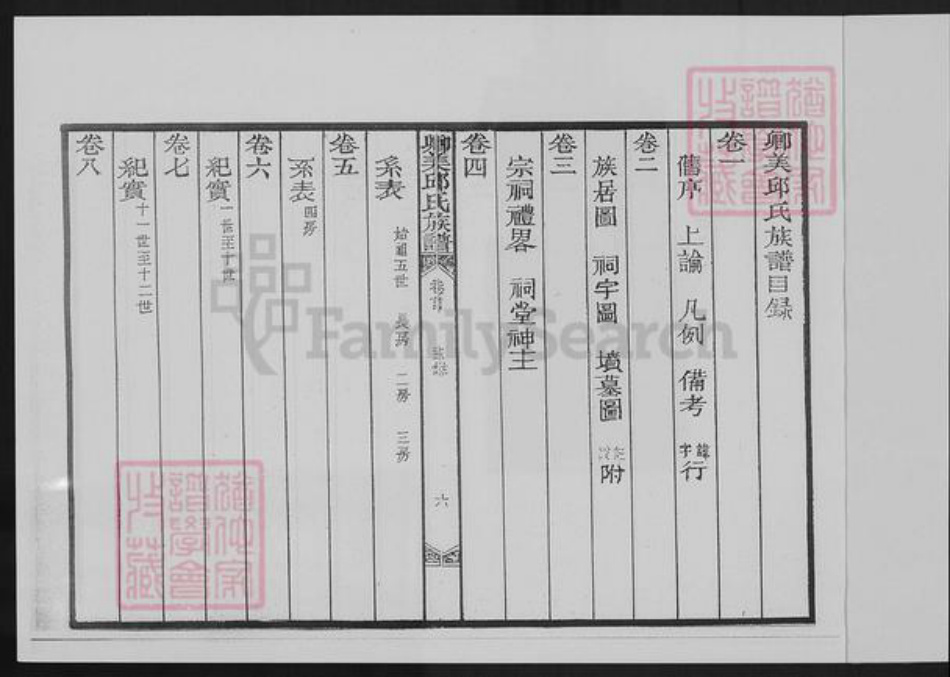 卿美邱氏族譜目錄
卷一
舊序 上諭 凡例 備考 諱字行
卷二
族居圖 祠宇圖 墳墓圖 附
卷三
宗祠禮畧 祠堂神主
卷四
卿美邱氏族譜 卷首 目錄 六
系表 始祖五世 長房 二房 三房
卷五
系表 四房
卷六
紀實 一世至十世
卷七
紀實 十一世至十二世
卷八
FamilySearch